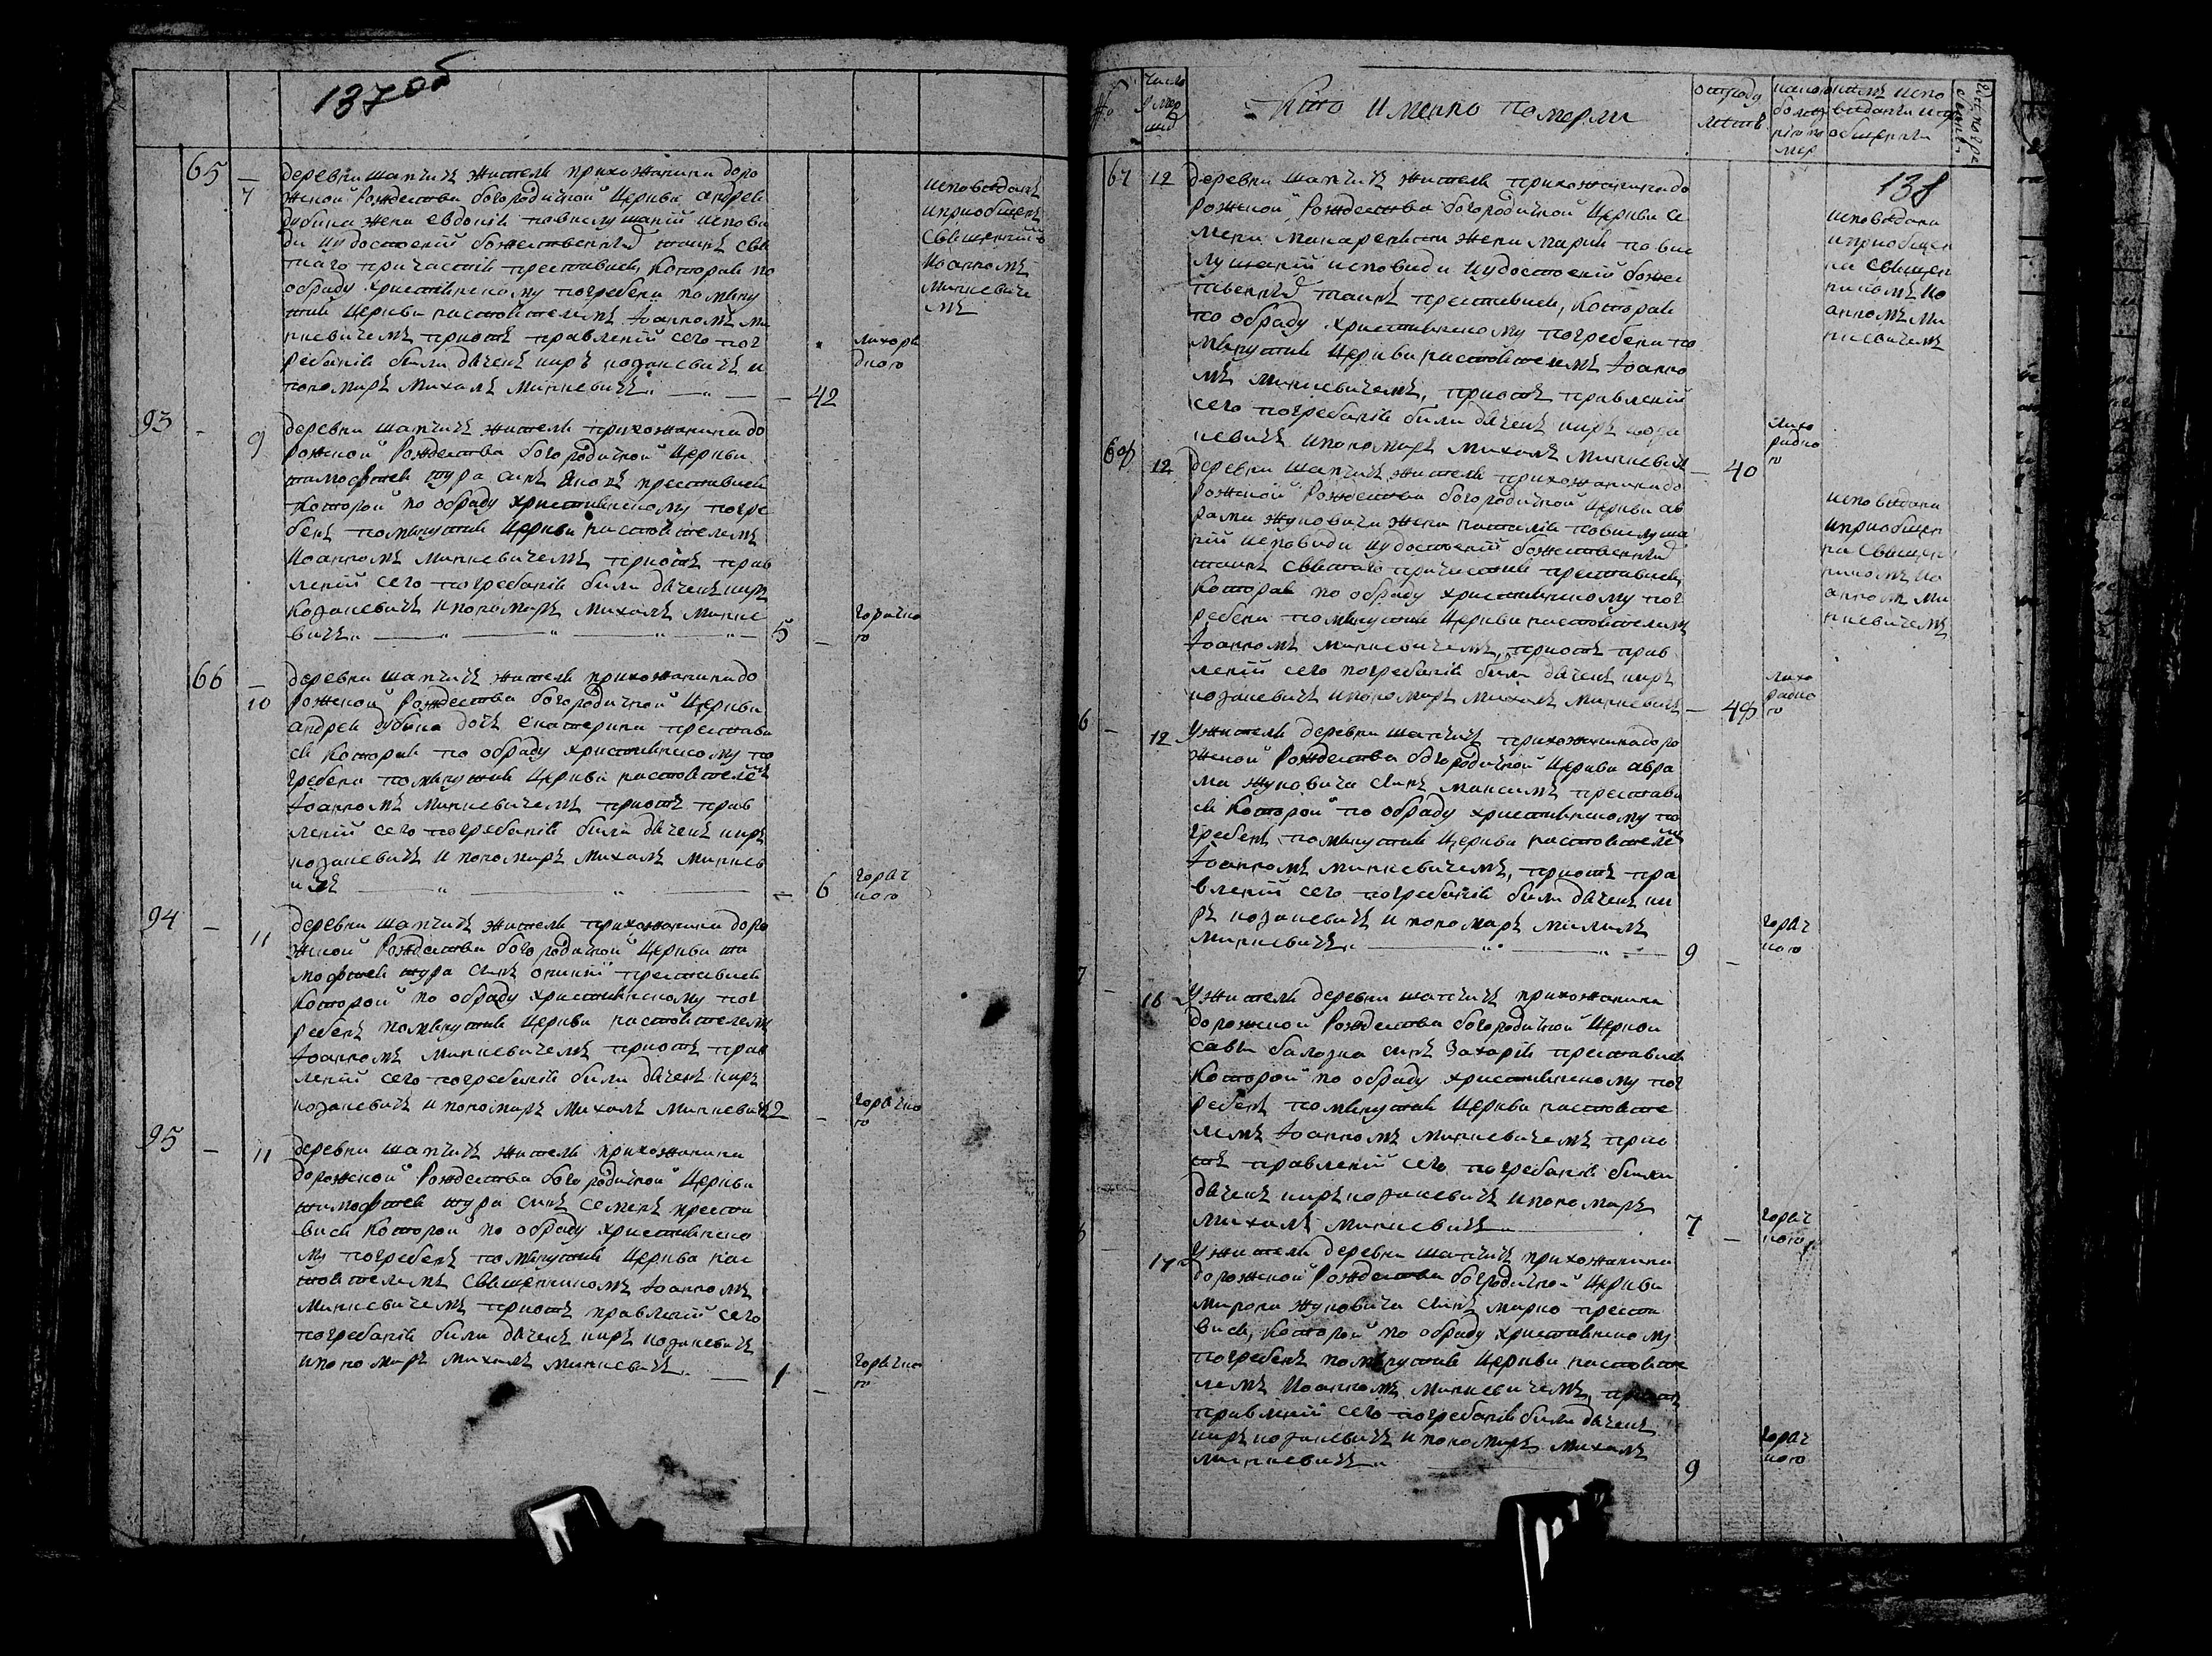 137 об
65 —
7
деревни шапчичъ жителя прихожанина доро
жской Рождества богородичной Церкви андрея
дубика жена евдокія по выслушаніи испове
ди и удостоеніи божественныхъ таинъ свя
таго причастія преставися, которая по
обряду християнскому погребена помяну
тыя Церкви настоятелемъ Іоанномъ ми
нкевичемъ приотъ правленіи сего пог
ребанія были дячекъ киръ козакевичъ и
пономаръ Михалъ Минкевичъ
— 42
лихора
дкою
исповѣданъ
и приобщенъ
священнико
Иоанномъ
Минкевиче
мъ
93 — 9
деревни шапчичъ жителя прихожанина до
рожской Рождества богородичной Церкви
тимофтея тура синъ Яковъ преставися
которой по обряду християнскому погре
бенъ помянутыя Церкви настоятелемъ
Иоанномъ Минкевичемъ приотъ прав
леніи сего погребанія были дячекъ киръ
козакевичъ и пономаръ Михалъ Минке
вичъ
5 —
горячко
ю
66 —
10
деревни шапчичъ жителя прихожанина до
рожской Рождества богородичной Церкви
андрея дубика дочъ екатерина престави
ся которая по обряду християнскому по
гребена помянутыя Церкви настоятелемъ
Іоанномъ Минкевичемъ приотъ прав
леніи сего погребанія были дячекъ киръ
козакевичъ и пономаръ Михалъ Минкев
ичъ
— 6
горяч
кою
94 — 11
деревни шапчичъ жителя прихожанина доро
жской Рождества богородичной Церкви ти
мофтея тура синъ
преставися
которой по обряду християнскому пог
ребенъ помянутыя Церкви настоятелемъ
Іоанномъ Минкевичемъ приотъ прав
леніи сего погребанія были дячекъ киръ
козакевичъ и пономаръ Михалъ Минкевичъ
2 —
горячко
ю
95 — 11
деревни шапчичъ жителя прихожанина
дорожской Рождества богородичной Церкви
тимофтея тура синъ Семенъ преста
вися которой по обряду християнско
му погребенъ помянутыя Церкви нас
тоятелемъ священникомъ Іоанномъ
Минкевичемъ приотъ правленіи сего
погребанія были дячекъ киръ козакевичъ
и пономаръ Михалъ Минкевичъ
1 —
горячко
ю
Число
умер
ших
Кто именно померли
отроду
летъ
какою
болез
нію по
мер
кемъ испо
веданы и пр
общены
138
67 12
деревни шапчичъ жителя прихожанина до
рожской Рождества богородичной Церкви се
мена макаревича жена мария по выс
лушаніи исповеди и удостоеніи божес
твенныхъ таинъ преставися, которая
по обряду християнскому погребена по
мянутыя Церкви настоятелемъ Іоанно
мъ Минкевичемъ, приотъ правленіи
сего погребанія были дячекъ киръ коза
кевичъ и пономаръ Михалъ Минкевичъ
— 40
лихо
радко
ю
исповѣдана
и приобщен
на священ
никомъ Ио
анномъ Ми
нкевичемъ
68 12
деревни шапчичъ жителя прихожанина до
рожской Рождества богородичной Церкви ав
рама жуковича жена наталія по выслуша
ніи исповеди и удостоеніи божественныхъ
таинъ святаго причастія преставися,
которая по обряду християнскому пог
ребена помянутыя Церкви настоятелемъ
Іоанномъ Минкевичемъ, приотъ прав
леніи сего погребанія были дячекъ киръ
козакевичъ и пономаръ Михалъ Минкевичъ
— 48
лихо
радко
ю
исповѣдана
и приобщен
на священ
никомъ Ио
анномъ Ми
нкевичемъ
6 — 12
У жителя деревни шапчичъ прихожанина доро
жской Рождества богородичной Церкви авра
ма жуковича синъ максимъ престави
ся которой по обряду християнскому по
гребенъ помянутыя Церкви настоятелемъ
Іоанномъ Минкевичемъ, приотъ пра
вленіи сего погребанія были дячекъ ки
ръ козакевичъ и пономаръ михалъ
Минкевичъ
9 —
горяч
кою
7 — 16
У жителя деревни шапчичъ прихожанина
дорожской Рождества богородичной Церкви
савы балозка синъ Захарія преставися
которой по обряду християнскому пог
ребенъ помянутыя Церкви настояте
лемъ Іоанномъ Минкевичемъ прио
тъ правленіи сего погребанія были
дячекъ киръ козакевичъ и пономаръ
Михалъ Минкевичъ
7 —
горяч
кою
17
У жителя деревни шапчичъ прихожанина
дорожской Рождества богородичной Церкви
мирона жуковича синъ марко преста
вися, которой по обряду християнскому
погребенъ помянутыя Церкви настояте
лемъ Иоанномъ Минкевичемъ, приотъ
правленіи сего погребанія были дячекъ
киръ козакевичъ и пономаръ Михалъ
Минкевичъ
9
горяч
кою